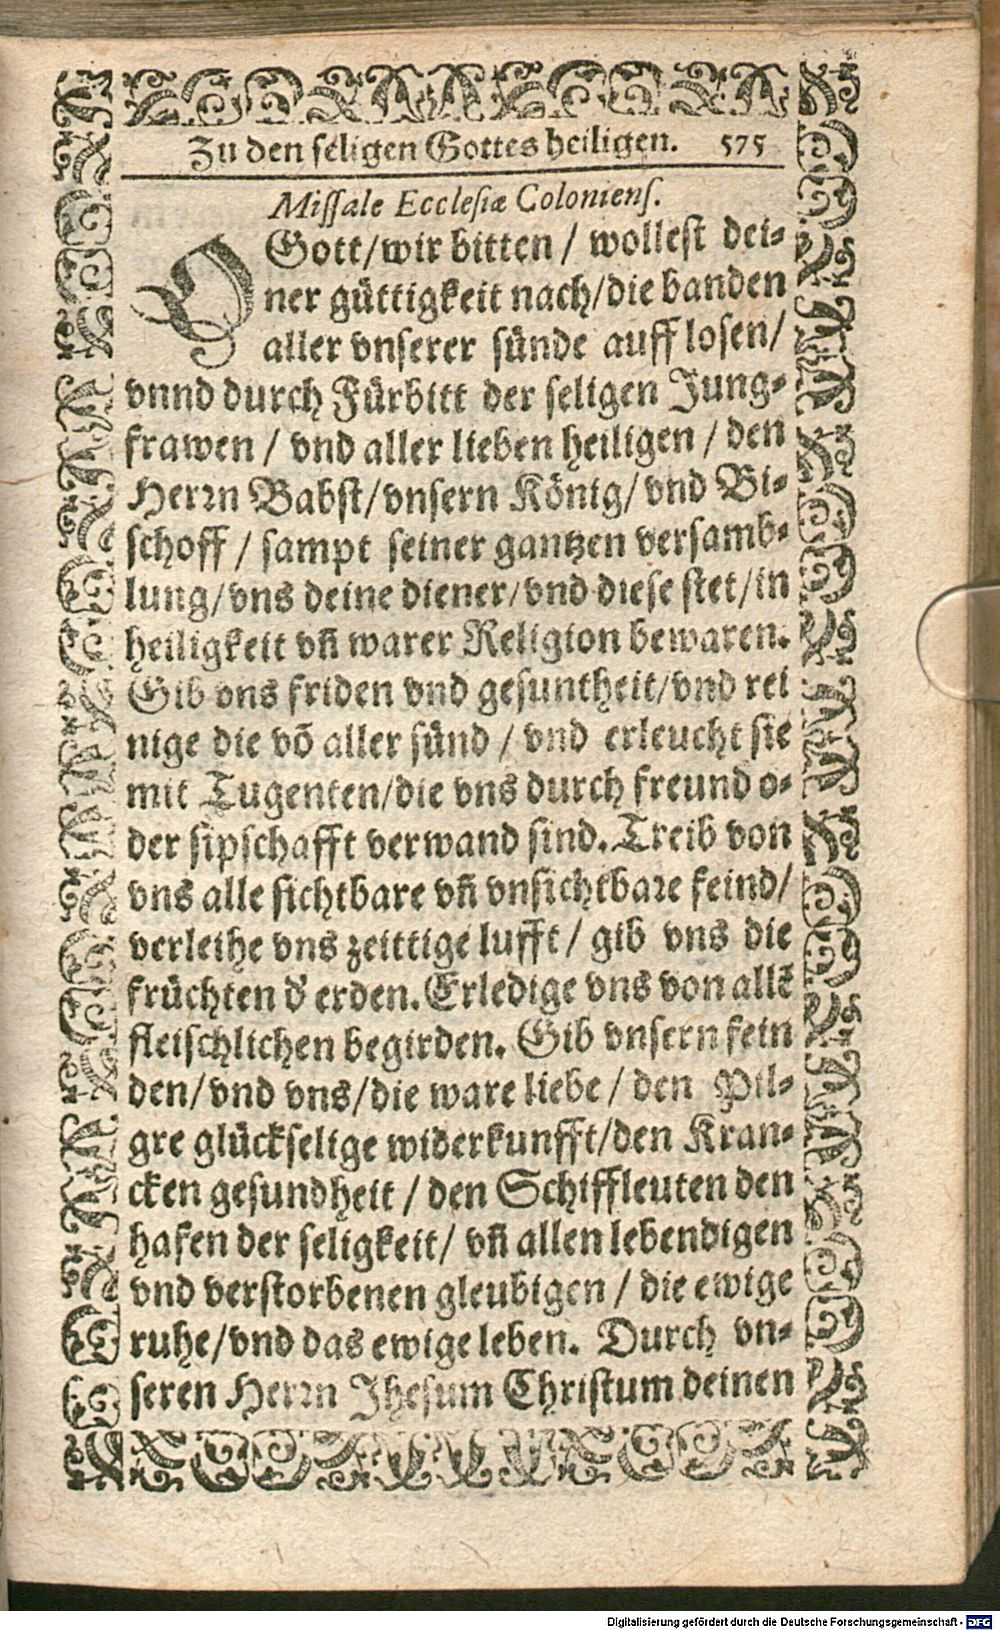 Zu den seligen Gottes heiligen. 575
Missale Ecclesiæ Coloniens.
O Gott/wir bitten / wollest dei⸗
ner güttigkeit nach/die banden
aller vnserer sünde auff losen/
vnnd durch Fürbitt der seligen Jung⸗
frawen / vnd aller lieben heiligen / den
Herrn Babst/vnsern König/vnd Bi⸗
schoff / sampt seiner gantzen versamb⸗
lung/vns deine diener/vnd diese stet/in
heiligkeit vñ warer Religion bewaren.
Gib vns friden vnd gesuntheit/vnd rei
nige die võ aller sünd / vnd erleucht sie
mit Tugenten/die vns durch freund o⸗
der sipschafft verwand sind. Treib von
vns alle sichtbare vñ vnsichtbare feind/
verleihe vns zeittige lufft / gib vns die
früchten d' erden. Erledige vns von allẽ
fleischlichen begirden. Gib vnsern fein
den/vnd vns/die ware liebe / den Pil⸗
gre glückselige widerkunfft/den Kran⸗
cken gesundheit / den Schiffleuten den
hafen der seligkeit/ vñ allen lebendigen
vnd verstorbenen gleubigen / die ewige
ruhe/vnd das ewige leben. Durch vn⸗
seren Herrn Jhesum Christum deinen
Digitalisierung gefördert durch die Deutsche Forschungsgemeinschaft - DFG